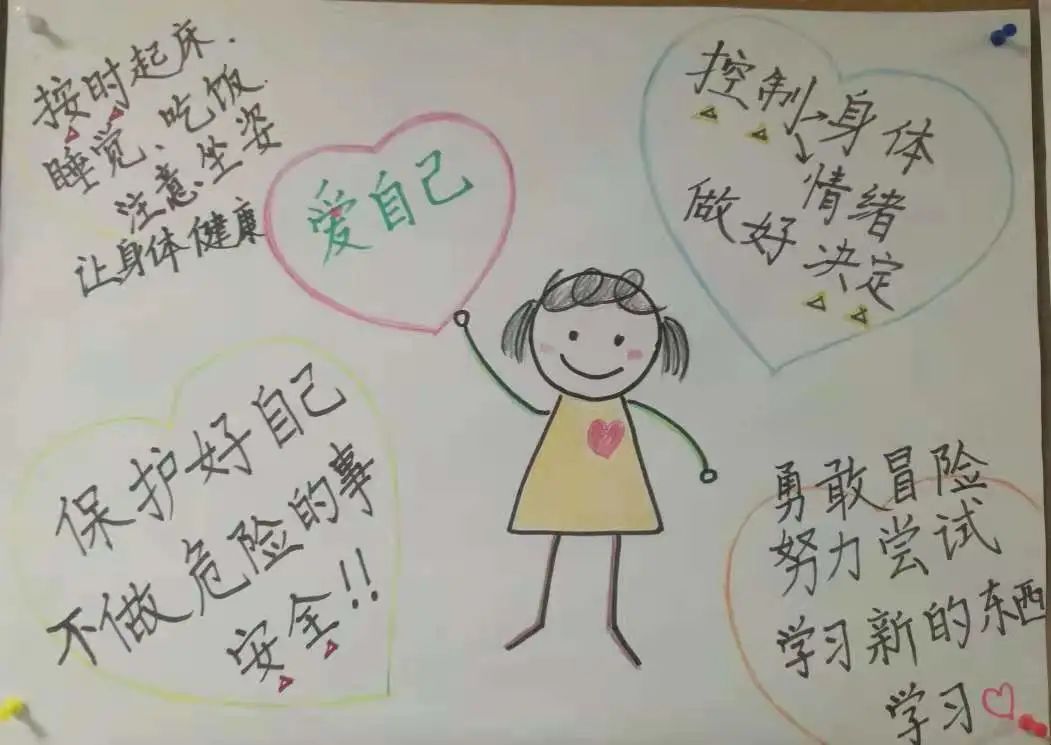 按时起床.
睡觉、吃饭
注意坐姿
让身体健康
爱自己
控制→身体
↘情绪
做好决定
保护好自己
不做危险的事
安全!!
勇敢冒险
努力尝试
学习新的东西
学习♡